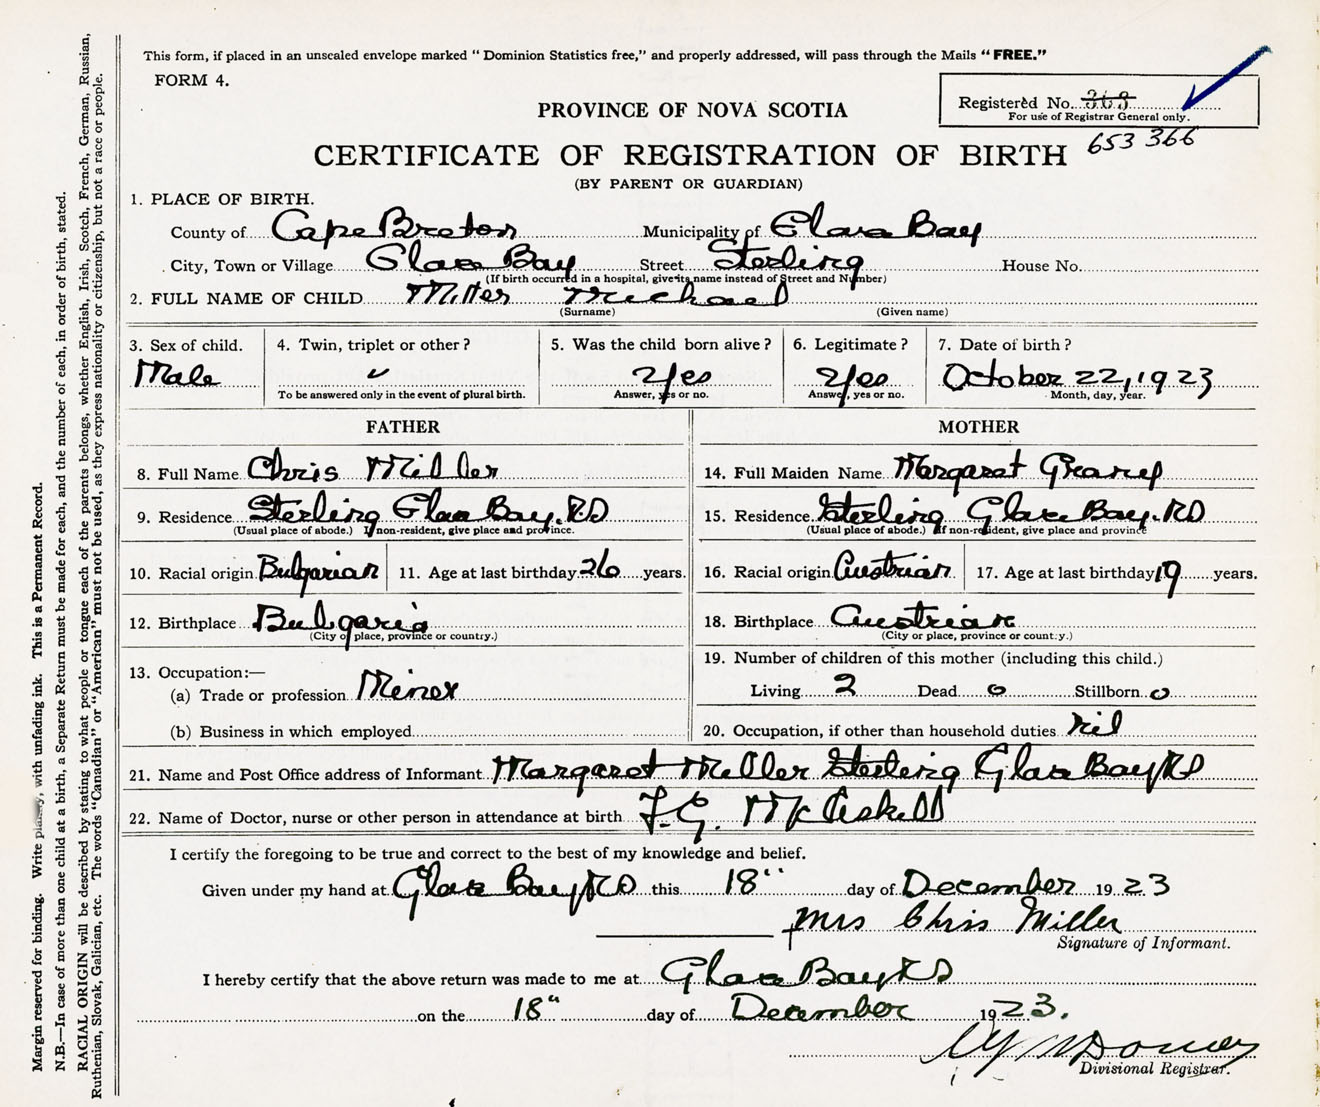 This form, if placed in an unsealed envelope marked “ Dominion Statistics free,” and properly addressed, will pass through the Mails “ FREE.”
FORM 4.
Registered No. 368
For use of Registrar General only.
653 366
PROVINCE OF NOVA SCOTIA
CERTIFICATE OF REGISTRATION OF BIRTH
(BY PARENT OR GUARDIAN)
1. PLACE OF BIRTH.
County of Cape Breton Municipality of Glace Bay
City, Town or Village Glace Bay Street Sterling House No.
(If birth occurred in a hospital, give its name instead of Street and Number)
2. FULL NAME OF CHILD Miller Michael
(Surname) (Given name)
3. Sex of child. 4. Twin, triplet or other ? 5. Was the child born alive ? 6. Legitimate ? 7. Date of birth ?
Male Yes Yes October 22, 1923
To be answered only in the event of plural birth. Answer, yes or no. Answer, yes or no. Month, day, year.
FATHER MOTHER
8. Full Name Chris Miller 14. Full Maiden Name Margaret
9. Residence Sterling Glace Bay. RD 15. Residence Sterling Glace Bay. RD
(Usual place of abode.) If non-resident, give place and province. (Usual place of abode.) If non-resident, give place and province
10. Racial origin Bulgarian 11. Age at last birthday 26 years. 16. Racial origin Austrian 17. Age at last birthday 19 years.
12. Birthplace Bulgaria 18. Birthplace Austrian
(City or place, province or country.) (City or place, province or country.)
13. Occupation:— 19. Number of children of this mother (including this child.)
(a) Trade or profession Miner Living 2 Dead 0 Stillborn 0
(b) Business in which employed 20. Occupation, if other than household duties nil
21. Name and Post Office address of Informant Margaret Miller Sterling Glace Bay RD
22. Name of Doctor, nurse or other person in attendance at birth
I certify the foregoing to be true and correct to the best of my knowledge and belief.
Given under my hand at Glace Bay RD this 18" day of December 1923
Mrs Chris Miller
Signature of Informant.
I hereby certify that the above return was made to me at Glace Bay RD
on the 18" day of December 1923.
Divisional Registrar.
Margin reserved for binding. Write plainly, with unfading ink. This is a Permanent Record.
N.B.—In case of more than one child at a birth, a Separate Return must be made for each, and the number of each, in order of birth, stated.
RACIAL ORIGIN will be described by stating to what people or tongue each of the parents belongs, whether English, Irish, Scotch, French, German, Russian,
Ruthenian, Slovak, Galician, etc. The words “Canadian” or “American” must not be used, as they express nationality or citizenship, but not a race or people.